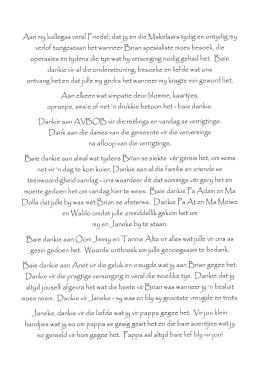 Aan my kollegas veral Friedel, dat jy en die Makelaars tydig en ontydig my
verlof toegestaan het wanneer Brian spesialiste moes besoek, die
operasies en tydens die tye wat hy versorging nodig gehad het. Baie
dankie vir al die ondersteuning, besoeke en liefde wat ons
ontvang het en dat julle my gedra het wanneer my kragte min geword het.
Aan elkeen wat simpatie deur blomme, kaartjies,
oproepe, sms'e of net 'n drukkie betoon het - baie dankie.
Dankie aan AVBOB vir die reëlings en vandag se verrigtinge.
Dank aan die dames van die gemeente vir die verversings
na afloop van die verrigtinge.
Baie dankie aan almal wat tydens Brian se siekte vir gereis het, om soms
net vir 'n dag te kom kuier. Dankie aan al die familie en vriende se
teenwoordigheid vandag - ons waardeer dit dat sommige vêr gery het en
moeite gedoen het om vandag hier te wees. Baie dankie Pa Adam en Ma
Dolla dat julle by was met Brian se afsterwe. Dankie Pa At en Ma Meiwie
en Waldo omdat julle onmiddellik gekom het om
my en Janeke by te staan.
Baie dankie aan Oom Jimmy en Tannie Alta vir alles wat julle vir ons as
gesin gedoen het. Woorde ontbreek om julle genoegsaam te bedank.
Baie dankie aan Anet vir die geluk en vreugde wat jy aan Brian gegee het.
Dankie vir die pragtige versorging in veral die moeilike tye. Dankie dat jy
altyd jouself afgevra het wat die beste vir Brian was wanneer jy 'n besluit
moes neem. Dankie vir Janeke - sy was en bly sy grootste vreugde en trots.
Janeke, dankie vir die liefde wat jy vir pappa gegee het. Vir jou klein
handjies wat jy so om pappa se gesig gesit het en die baie soentjies wat jy
so gereeld vir hom gegee het. Pappa sal altyd baie lief bly vir jou!